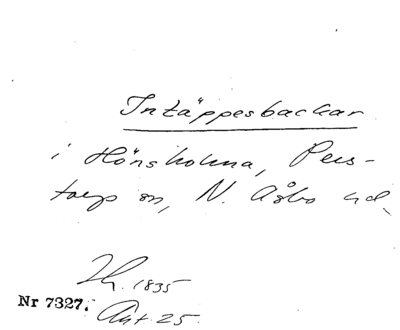 Intäppesbackar
i Hönsholma, Pers-
torp sn, N. Åsbo hd.
Zh. 1835
Nr 7327. Akt 25.